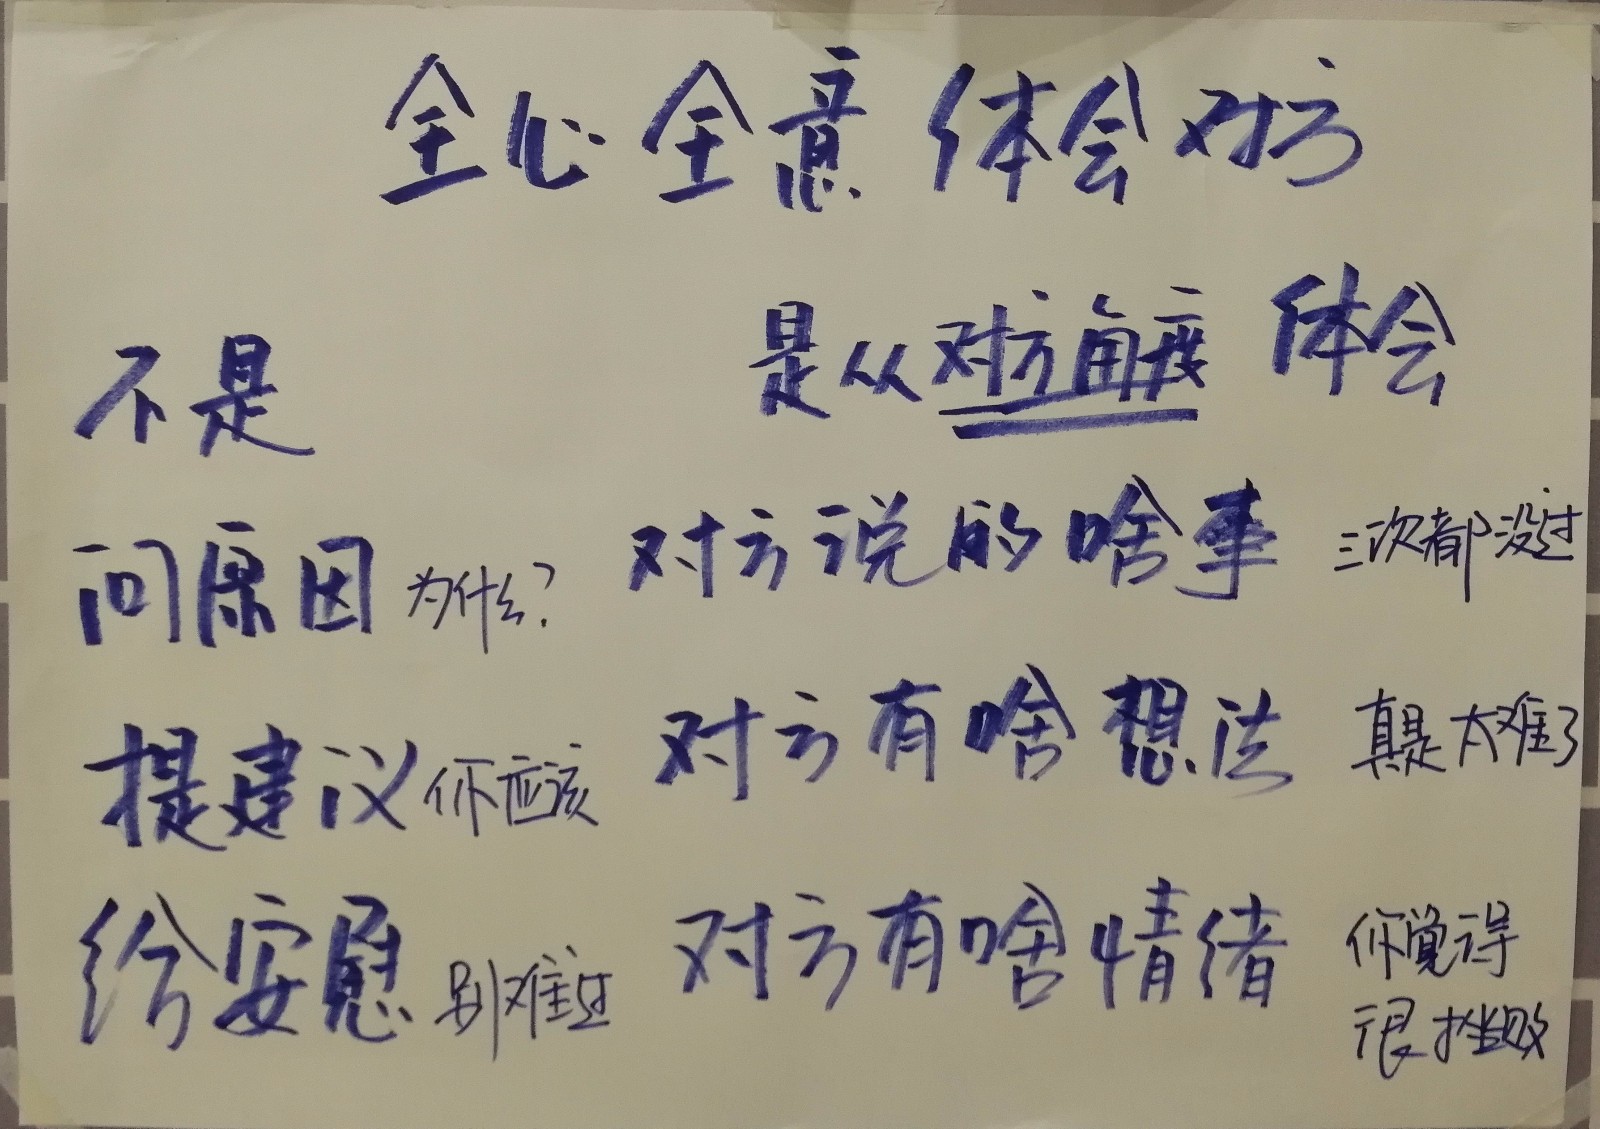 全心全意体会对方
不是
是从对方角度 体会
问原因 为什么?
对方说的啥事 三次都没过
提建议 你应该
对方有啥想法 真是太难了
给安慰 别难过
对方有啥情绪 你觉得
很挫败